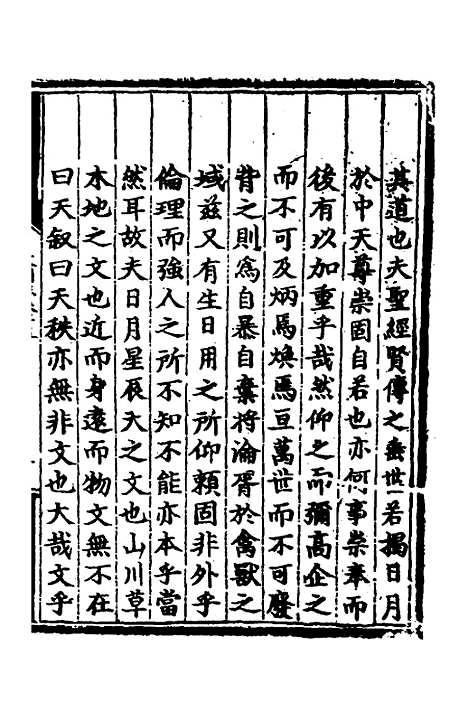 其道也夫聖經賢傳之垂世若揭日月
於中天尊崇固自若也亦何事崇奉而
後有以加重乎哉然仰之而彌高企之
而不可及炳焉煥焉亘萬世而不可廢
背之則為自暴自棄將淪胥於禽獸之
域茲又有生日用之所仰賴固非外乎
倫理而強人之所不知不能亦本乎當
然耳故夫日月星辰天之文也山川草
木地之文也近而身遠而物文無不在
曰天叙曰天秩亦無非文也大哉文乎